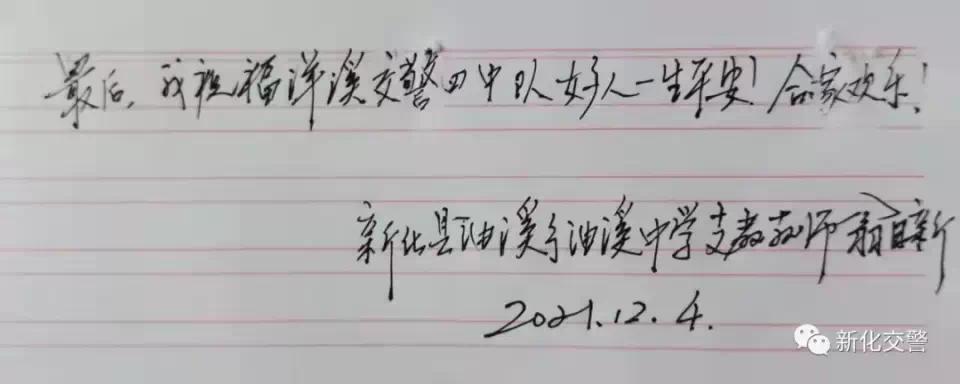 最后,我祝福洋溪交警四中队好人一生平安!合家欢乐!
新化县油溪乡油溪中学支教教师 新
2021.12.4.
新化交警